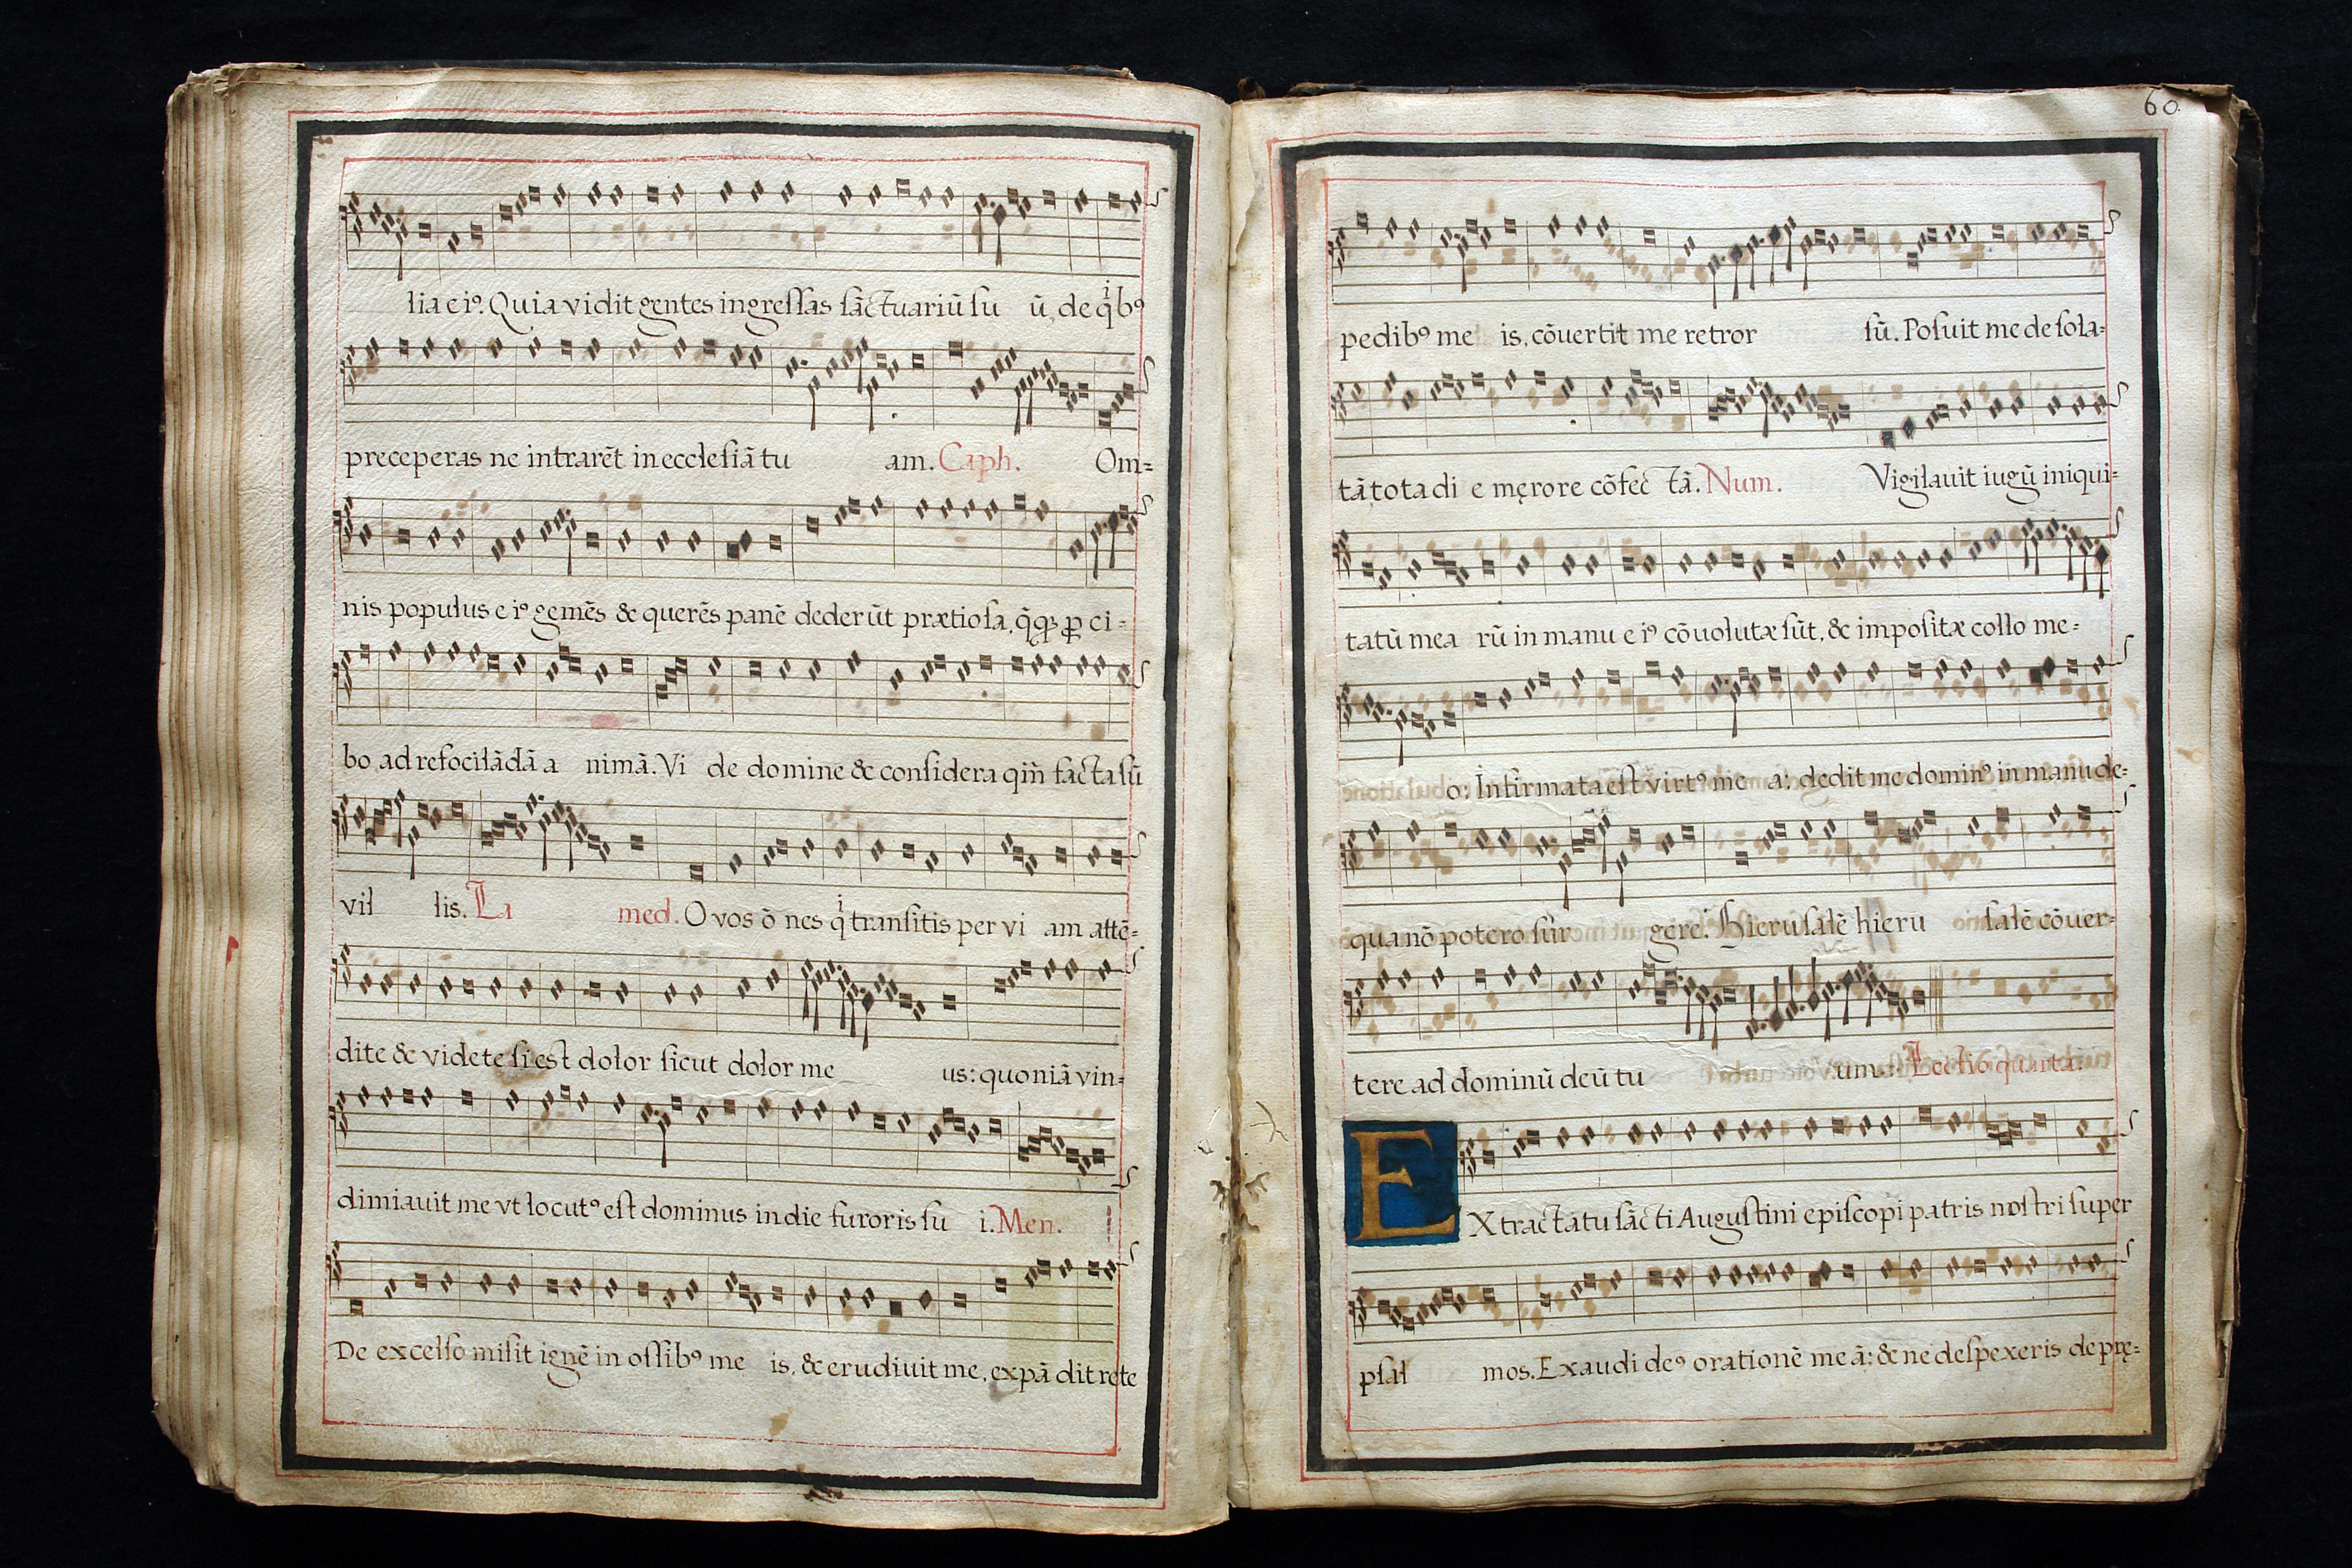 lia eiꝰ. Quia vidit gentes ingreſſas ſāctuariū ſu ū, de qͥbꝰ
preceperas ne intrarēt in eccleſiā tu am. Caph. Om=
nis populus eiꝰ gemēs & querēs panē dederūt prætioſa, q̄qꝫ ꝓ ci=
bo ad refocilādā a nimā. Vi de domine & conſidera qm̄ facta ſū
vil lis. La med. O vos ō nes qͥ tranſitis per vi am attē=
dite & videte ſi est dolor ſicut dolor me us: quoniā vin=
dimiauit me vt locutꝰ eſt dominus in die furoris ſu i. Men.
De excelſo miſit ignē in oſſibꝰ me is, & erudiuit me, expā dit rete
60.
pedibꝰ me is, cōuertit me retror ſū. Poſuit me deſola=
tā, tota di e męrore cōfec tā. Num. Vigilauit iugū iniqui=
tatū mea rū in manu eiꝰ cōuolutæ ſūt, & impoſitæ collo me=
o: Infirmata eſt virtꝰ me a: dedit me dominꝰ in manu de=
qua nō potero ſur gere. Hieruſalē hieru ſalē cōuer=
tere ad dominū deū tu um. Lectio quarta.
EX tractatu ſācti Auguſtini epiſcopi patris noſtri ſuper
pſal mos. Exaudi deꝰ orationē me ā: & ne deſpexeris deprę=